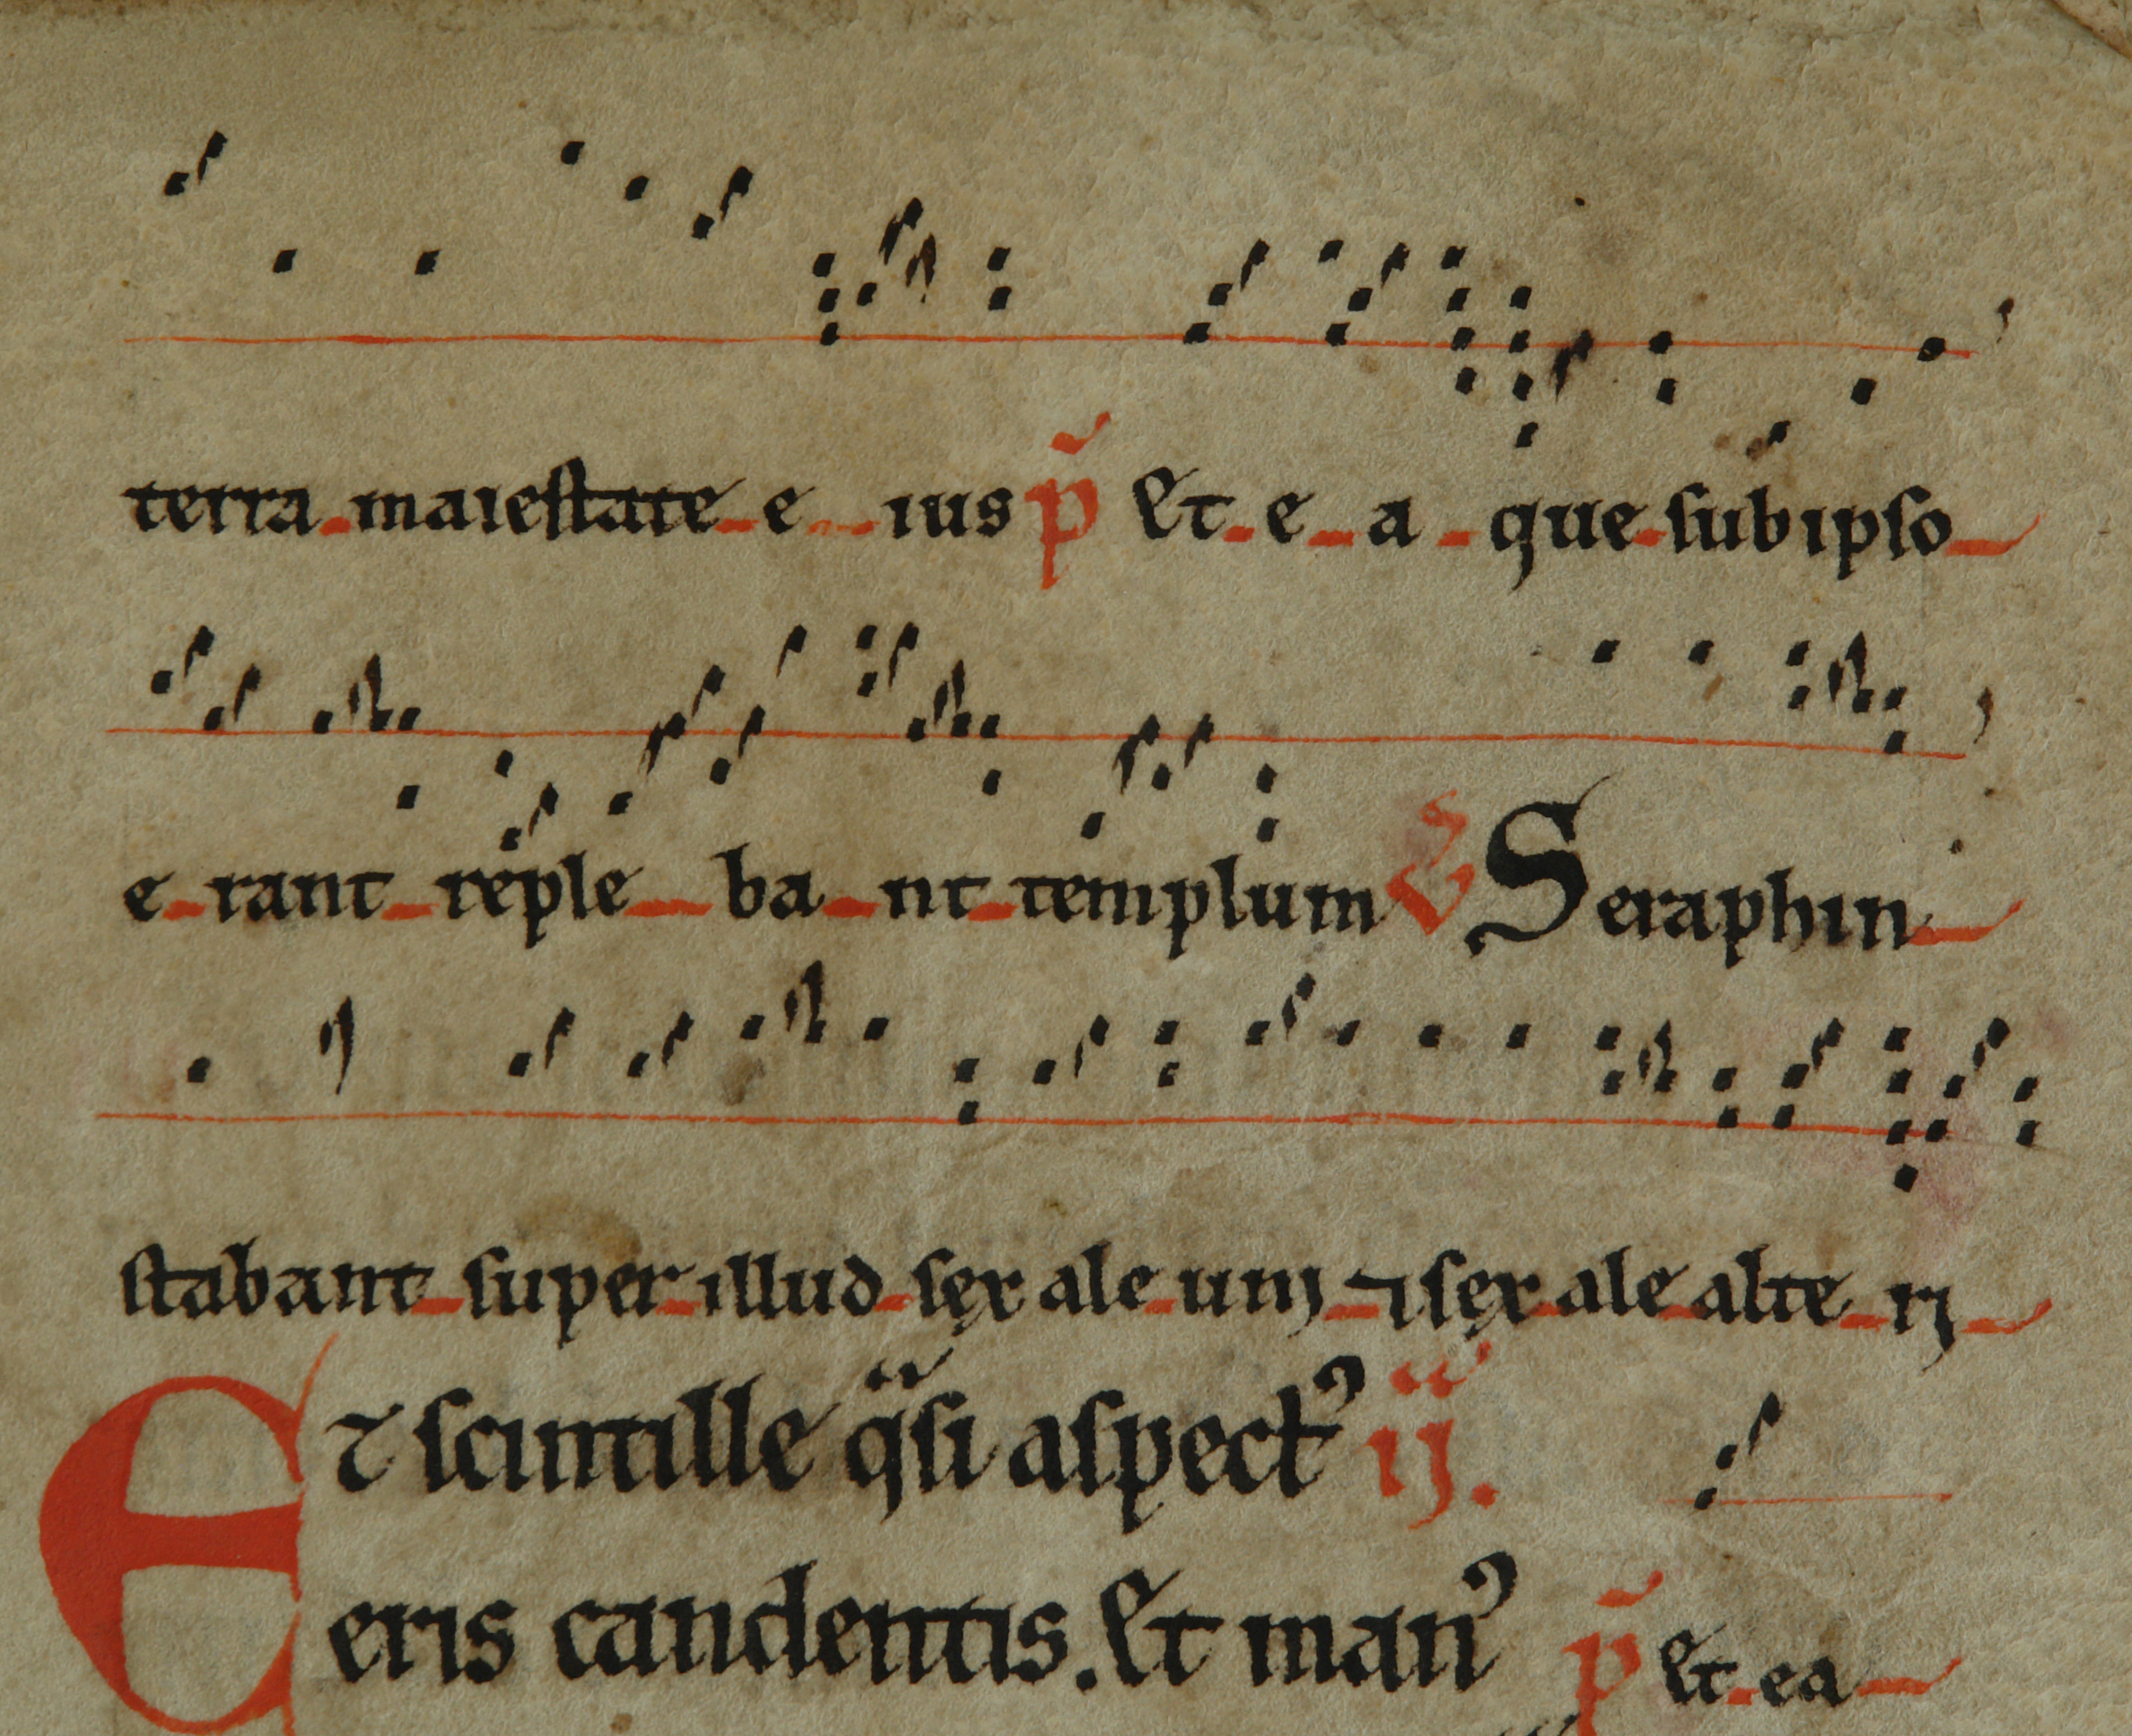 terra maiestate e ius p̃ Et e a que sub ipso
e rant reple ba nt templum ℣ Seraphin
stabant super illud sęx ale uni ⁊ sęx ale alte ri
Et scintille qͣsi aspectꝰ ij.
eris candentis. Et manꝰ p̃ Et ea